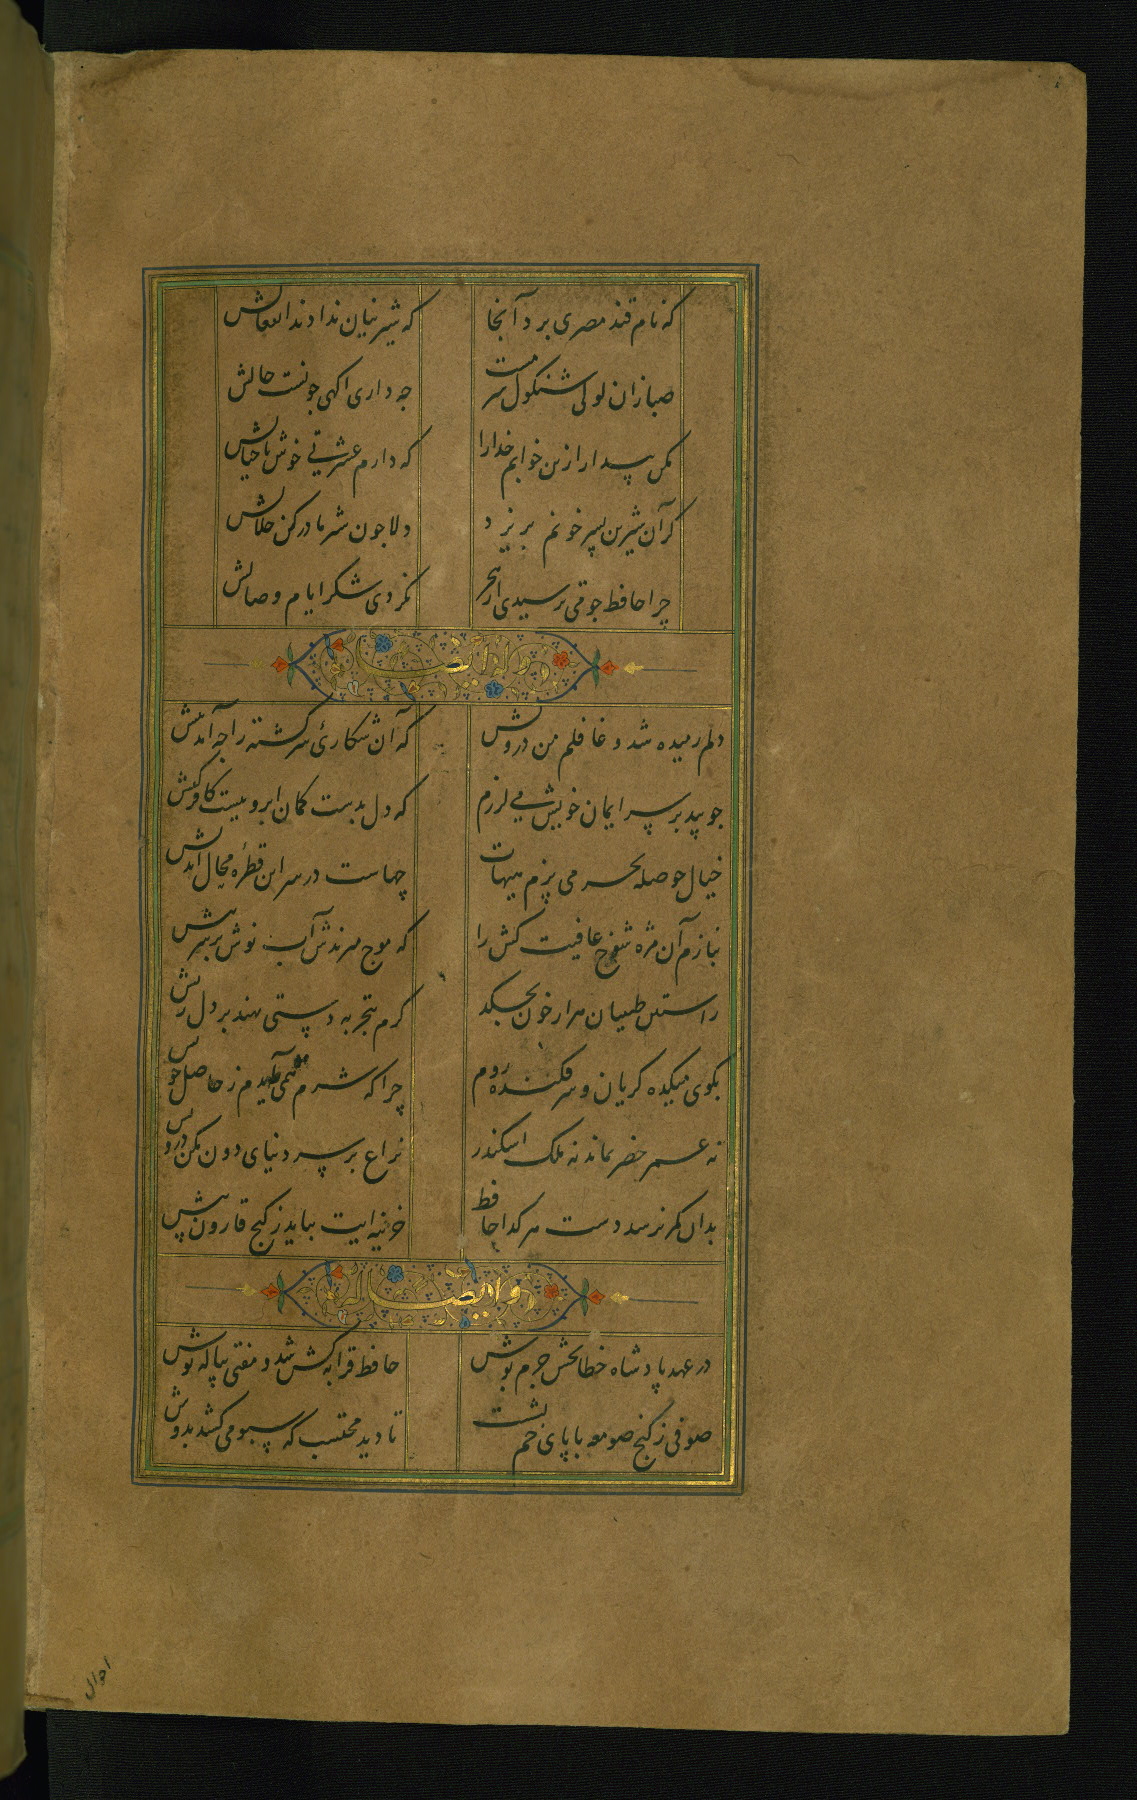 که نام قند مصری برد آنجا که شیرینان ندادند انفعالش
صبا زان لولی شنگول سرمست چه داری اکهی چونست حالش
مکن بیدار ازین خوابم خدارا که دارم عشرتی خوش با خیالش
کر آن شیرین پسر خونم بریزد دلا چون شیر مادر کن حلالش
چرا حافظ چو می ترسیدی از هجر نکردی شکر ایام وصالش
وله ایضا
دلم رمیده شد و غافلم من درویش که آن شکاری سرکشته را چه آمد پیش
چو بید بر سر ایمان خویش می لرزم که دل بدست کمان ابرویست کافر کیش
خیال حوصله بحر می پزم هیهات چهاست در سر این قطره محال اندیش
بنازم آن مژه شوخ عافیت کش را که موج میزندش آب نوش بر سر نیش
ز آستین طبیبان هزار خون بچکد کرم بتجربه دستی نهند بر دل ریش
بکوی میکده کریان و سرفکنده روم چرا که شرم همی آیدم ز حاصل خویش
نه عمر خضر بماند نه ملک اسکندر نزاع بر سر دنیای دون مکن درویش
بدان کمر نرسد دست هر کدا حافظ خزینه ایت بباید ز کنج قارون بیش
وایضا له
در عهد پادشاه خطابخش جرم پوش حافظ قرابه کش شد و مفتی پیاله نوش
صوفی ز کنج صومعه با پای خم نشست تا دید محتسب که سبو می کشد بدوش
احوال